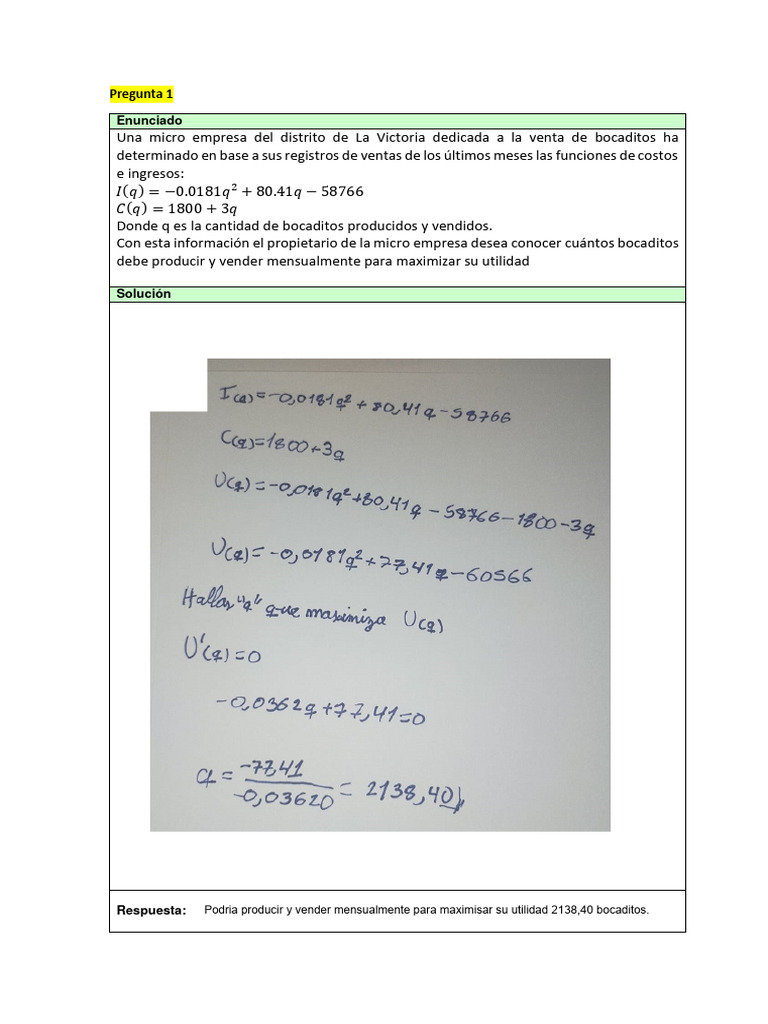 Pregunta 1
Enunciado
Una micro empresa del distrito de La Victoria dedicada a la venta de bocaditos ha
determinado en base a sus registros de ventas de los últimos meses las funciones de costos
e ingresos:
𝐼(𝑞) = −0.0181𝑞² + 80.41𝑞 − 58766
𝐶(𝑞) = 1800 + 3𝑞
Donde q es la cantidad de bocaditos producidos y vendidos.
Con esta información el propietario de la micro empresa desea conocer cuántos bocaditos
debe producir y vender mensualmente para maximizar su utilidad
Solución
I(q)=-0,0181q²+80,41q-58766
C(q)=1800+3q
U(q)=-0,0181q²+80,41q-58766-1800-3q
U(q)=-0,0181q²+77,41q-60566
Hallar "q" que maximiza U(q)
U'(q)=0
-0,0362q+77,41=0
q = -77,41/-0,03620 = 2138,40
Respuesta: Podria producir y vender mensualmente para maximisar su utilidad 2138,40 bocaditos.